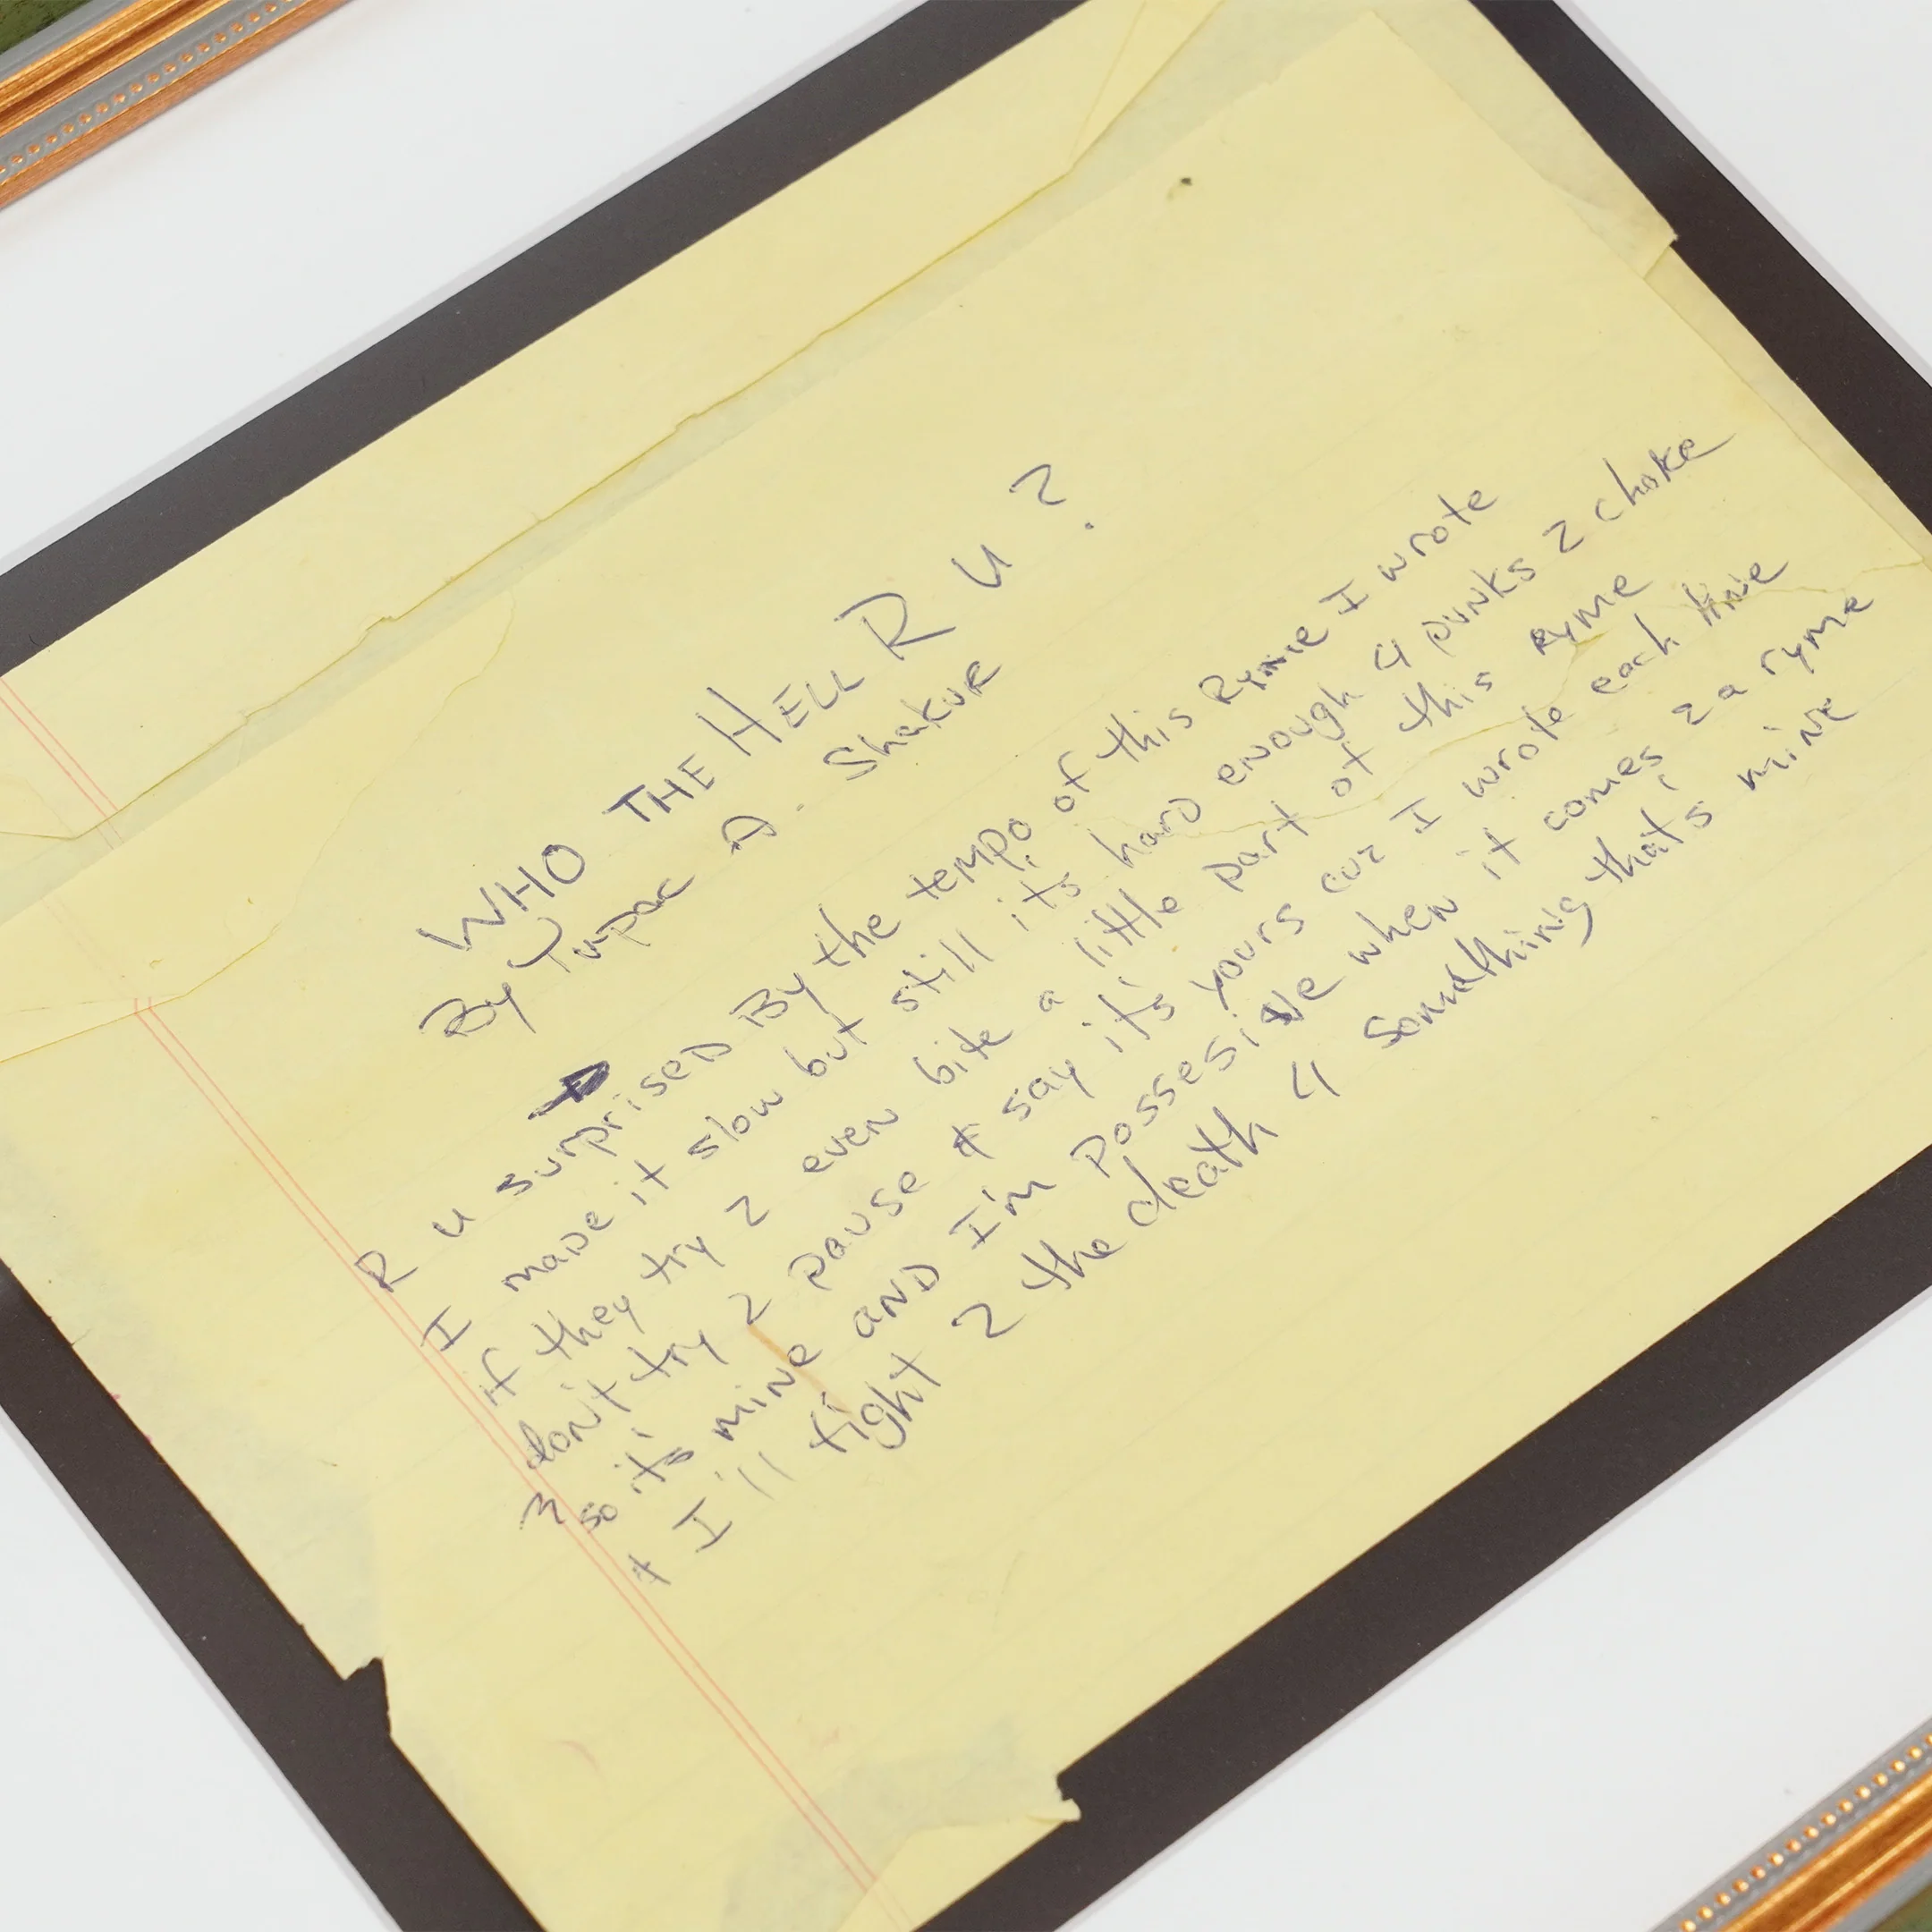 WHO THE HELL R U ?
By Tupac A. Shakur
R u surprised By the tempo of this Ryme I wrote
I made it slow but still it's hard enough 4 punks 2 choke
if they try 2 even bite a little part of this Ryme
don't try 2 pause & say it's yours cuz I wrote each line
so it's mine and I'm Possesive when it comes 2 a ryme
+ I'll fight 2 the death 4 something that's mine